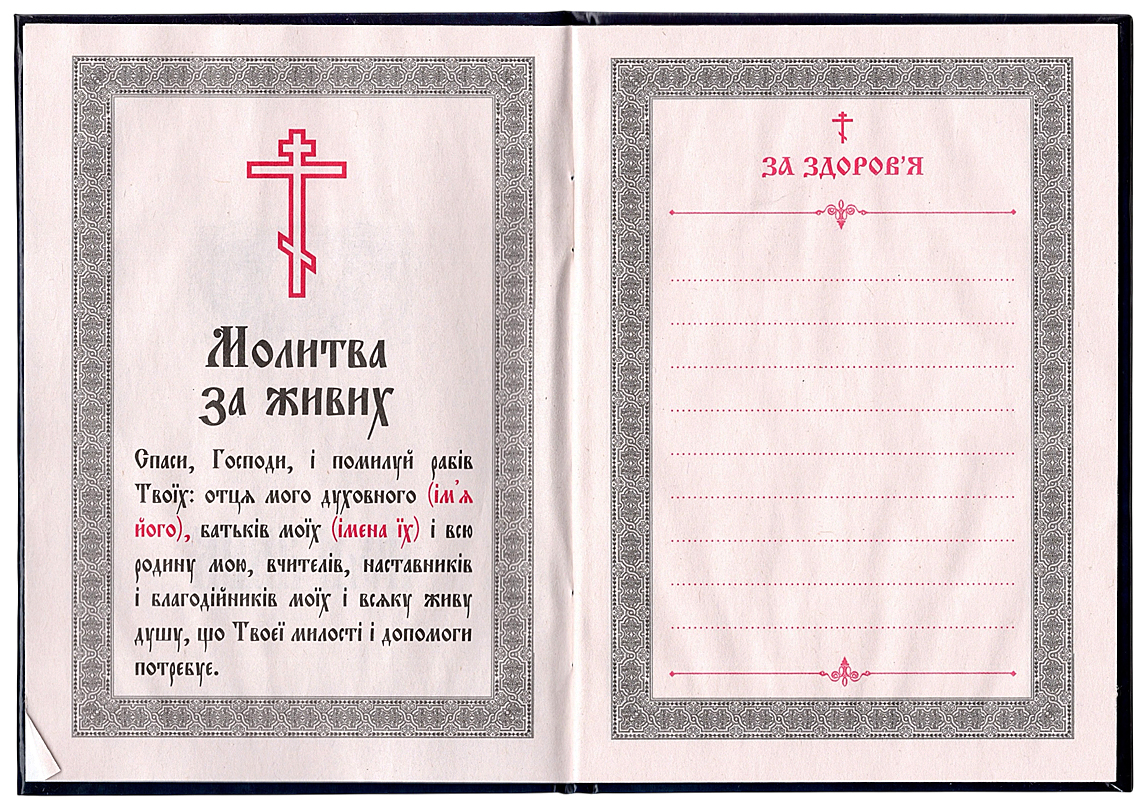 Молитва
за живих
Спаси, Господи, і помилуй рабів
Твоїх: отця мого духовного (ім'я
його), батьків моїх (імена їх) і всю
родину мою, вчителів, наставників
і благодійників моїх і всяку живу
душу, що Твоєї милості і допомоги
потребує.
ЗА ЗДОРОВ'Я